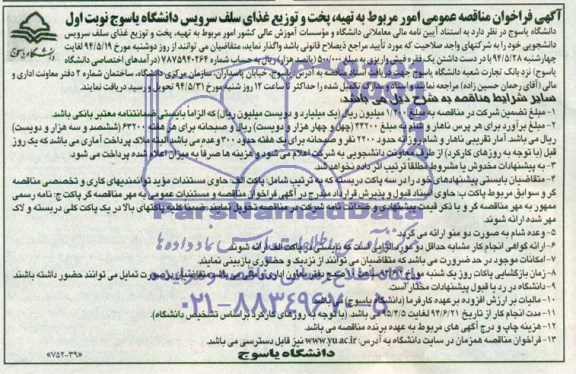 آگهی فراخوان مناقصه عمومی امور مربوط به تهیه، پخت و توزیع غذای سلف سرویس دانشگاه یاسوج نوبت اول
دانشگاه یاسوج در نظر دارد به استناد آیین نامه مالی معاملاتی دانشگاه و مؤسسات آموزش عالی کشور امور مربوط به تهیه، پخت و توزیع غذای سلف سرویس
دانشجویی خود را به شرکتهای واجد صلاحیت که مورد تأیید مراجع ذیصلاح قانونی باشد واگذار نماید، متقاضیان می توانند از روز دوشنبه مورخ ۹۴/۵/۱۹ لغایت
چهارشنبه ۹۴/۵/۲۸ با در دست داشتن یک فقره فیش واریزی به مبلغ ۵۰۰/۰۰۰ (پانصد هزار) ریال به حساب شماره ۷۸۷۵۹۴۰۲۶۴ (درآمدهای اختصاصی دانشگاه
یاسوج) نزد بانک تجارت شعبه دانشگاه یاسوج جهت دریافت اسناد مناقصه به آدرس یاسوج، خیابان پاسداران، سازمان مرکزی دانشگاه، ساختمان شماره ۲ دفتر معاونت اداری و
مالی (آقای رحمان حسین زاده) مراجعه نمایند و اسناد و مدارک تکمیل شده را حداکثر تا ساعت ۱۲ روز شنبه مورخ ۹۴/۵/۳۱ تحویل و رسید دریافت نمایند.
سایر شرایط مناقصه به شرح ذیل می باشد:
۱- مبلغ تضمین شرکت در مناقصه به مبلغ میلیون ریال (یک میلیارد و دویست میلیون ریال) که الزاما بایستی ضمانتنامه معتبر بانکی باشد.
۲- مبلغ برآورد برای هر پرس ناهار و شام به مبلغ ۴۴۲۰۰ (چهل چهار هزار و دویست) ریال و صبحانه برای هر هفته ۶۳۲۰۰ (ششصد و سه هزار و دویست)
ریال می باشد. آمار تقریبی ناهار و شام روزانه حدود ۲۲۰۰ نفر و صبحانه برای یک هفته حدود ۳۰۰ وعده می باشد البته ملاک پرداخت آماری می باشد که یک روز
قبل (با توجه به روزهای کارکرد) از طرف معاونت دانشجویی به شرکت اعلام می شود و هزینه ها صرفا به میزان اعلام شده پرداخت می شود.
۳- به پیشنهادات مخدوش یا مشروط مطلقا ترتیب اثر داده نخواهد شد.
۴- متقاضیان بایستی پیشنهادهای خود را در سه پاکت دربسته که به ترتیب شامل: پاکت الف: حاوی مستندات مؤید توانمندیهای کاری و تخصصی مناقصه
گر و سوابق مربوط پاکت ب: حاوی اسناد قبول و پذیرش قرارداد مندرج در آگهی و فراخوان مناقصه و مستندات ممهور به مهر مناقصه گر پاکت ج: نامه رسمی
ممهور به مهر مناقصه گر و با ذکر قیمت پیشنهادی و ضمانت نامه شرکت در مناقصه تحویل نمایند. ضمنا کلیه پاکتهای بالا در یک پاکت کلی دربسته و لاک
مهر شده ارائه شوند.
۵- وعده شام به صورت دو منو ارائه می گردد.
۶- ارائه گواهی انجام کار مشابه حداقل دو مورد الزامی است که بایستی در پاکت الف ارائه شوند.
۷- امکانات موجود در حد ضرورت می باشد که متقاضیان می توانند از نزدیک و حضوری بازبینی نمایند.
۸- زمان بازگشایی پاکات روز یک شنبه مورخ متقاضیان در صورت تمایل می توانند حضور داشته باشند
۹- دانشگاه در رد یا قبول پیشنهادات مختار است.
۱۰- مالیات بر ارزش افزوده بر عهده کارفرما (دانشگاه یاسوج)
۱۱- مدت انجام کار از تاریخ ۹۴/۶/۲۱ لغایت ۹۵/۳/۵ می باشد. (با توجه به روزهای کارکرد براساس تشخیص دانشگاه).
۱۲- هزینه چاپ و درج آگهی های مربوط به عهده برنده مناقصه می باشد.
۱۳- فراخوان مناقصه همزمان در سایت دانشگاه به آدرس: www.yu.ac.ir نیز قابل دسترسی می باشد.
دانشگاه یاسوج
«۷۵۲-۳۹»
دانشگاه یاسوج
ParsNamadData
۰۲۱-۸۸۳۴۹۶۷۰